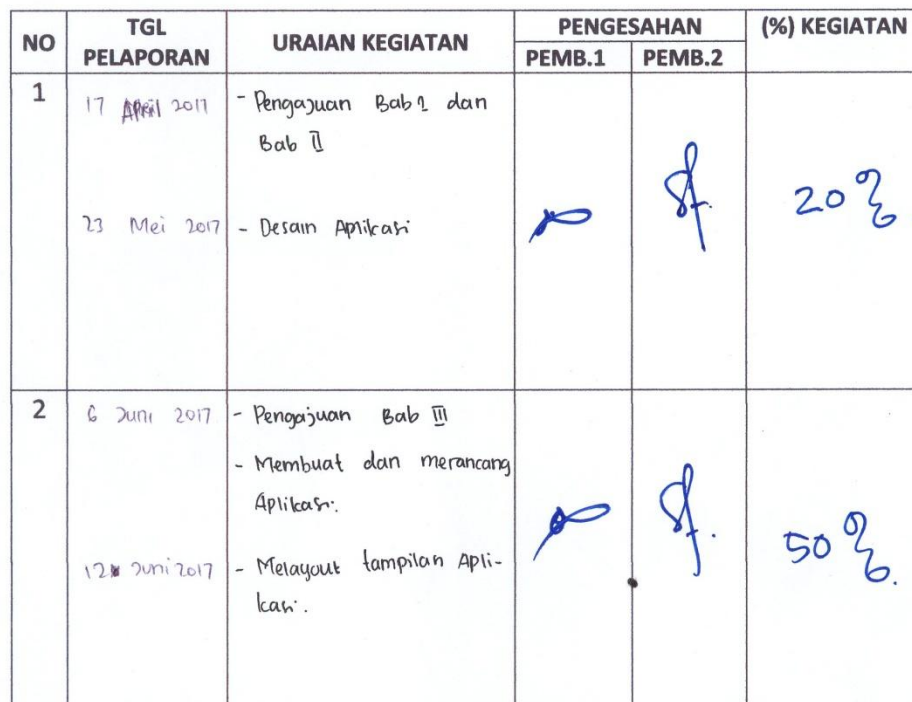 NO TGL PELAPORAN URAIAN KEGIATAN PENGESAHAN (%) KEGIATAN
PEMB.1 PEMB.2
1 17 April 2017 - Pengajuan Bab 1 dan
Bab II
23 Mei 2017 - Desain Aplikasi 20 %
2 6 Juni 2017 - Pengajuan Bab III
- Membuat dan merancang
Aplikasi.
12 Juni 2017 - Melayout tampilan Apli-
kasi. 50 %.